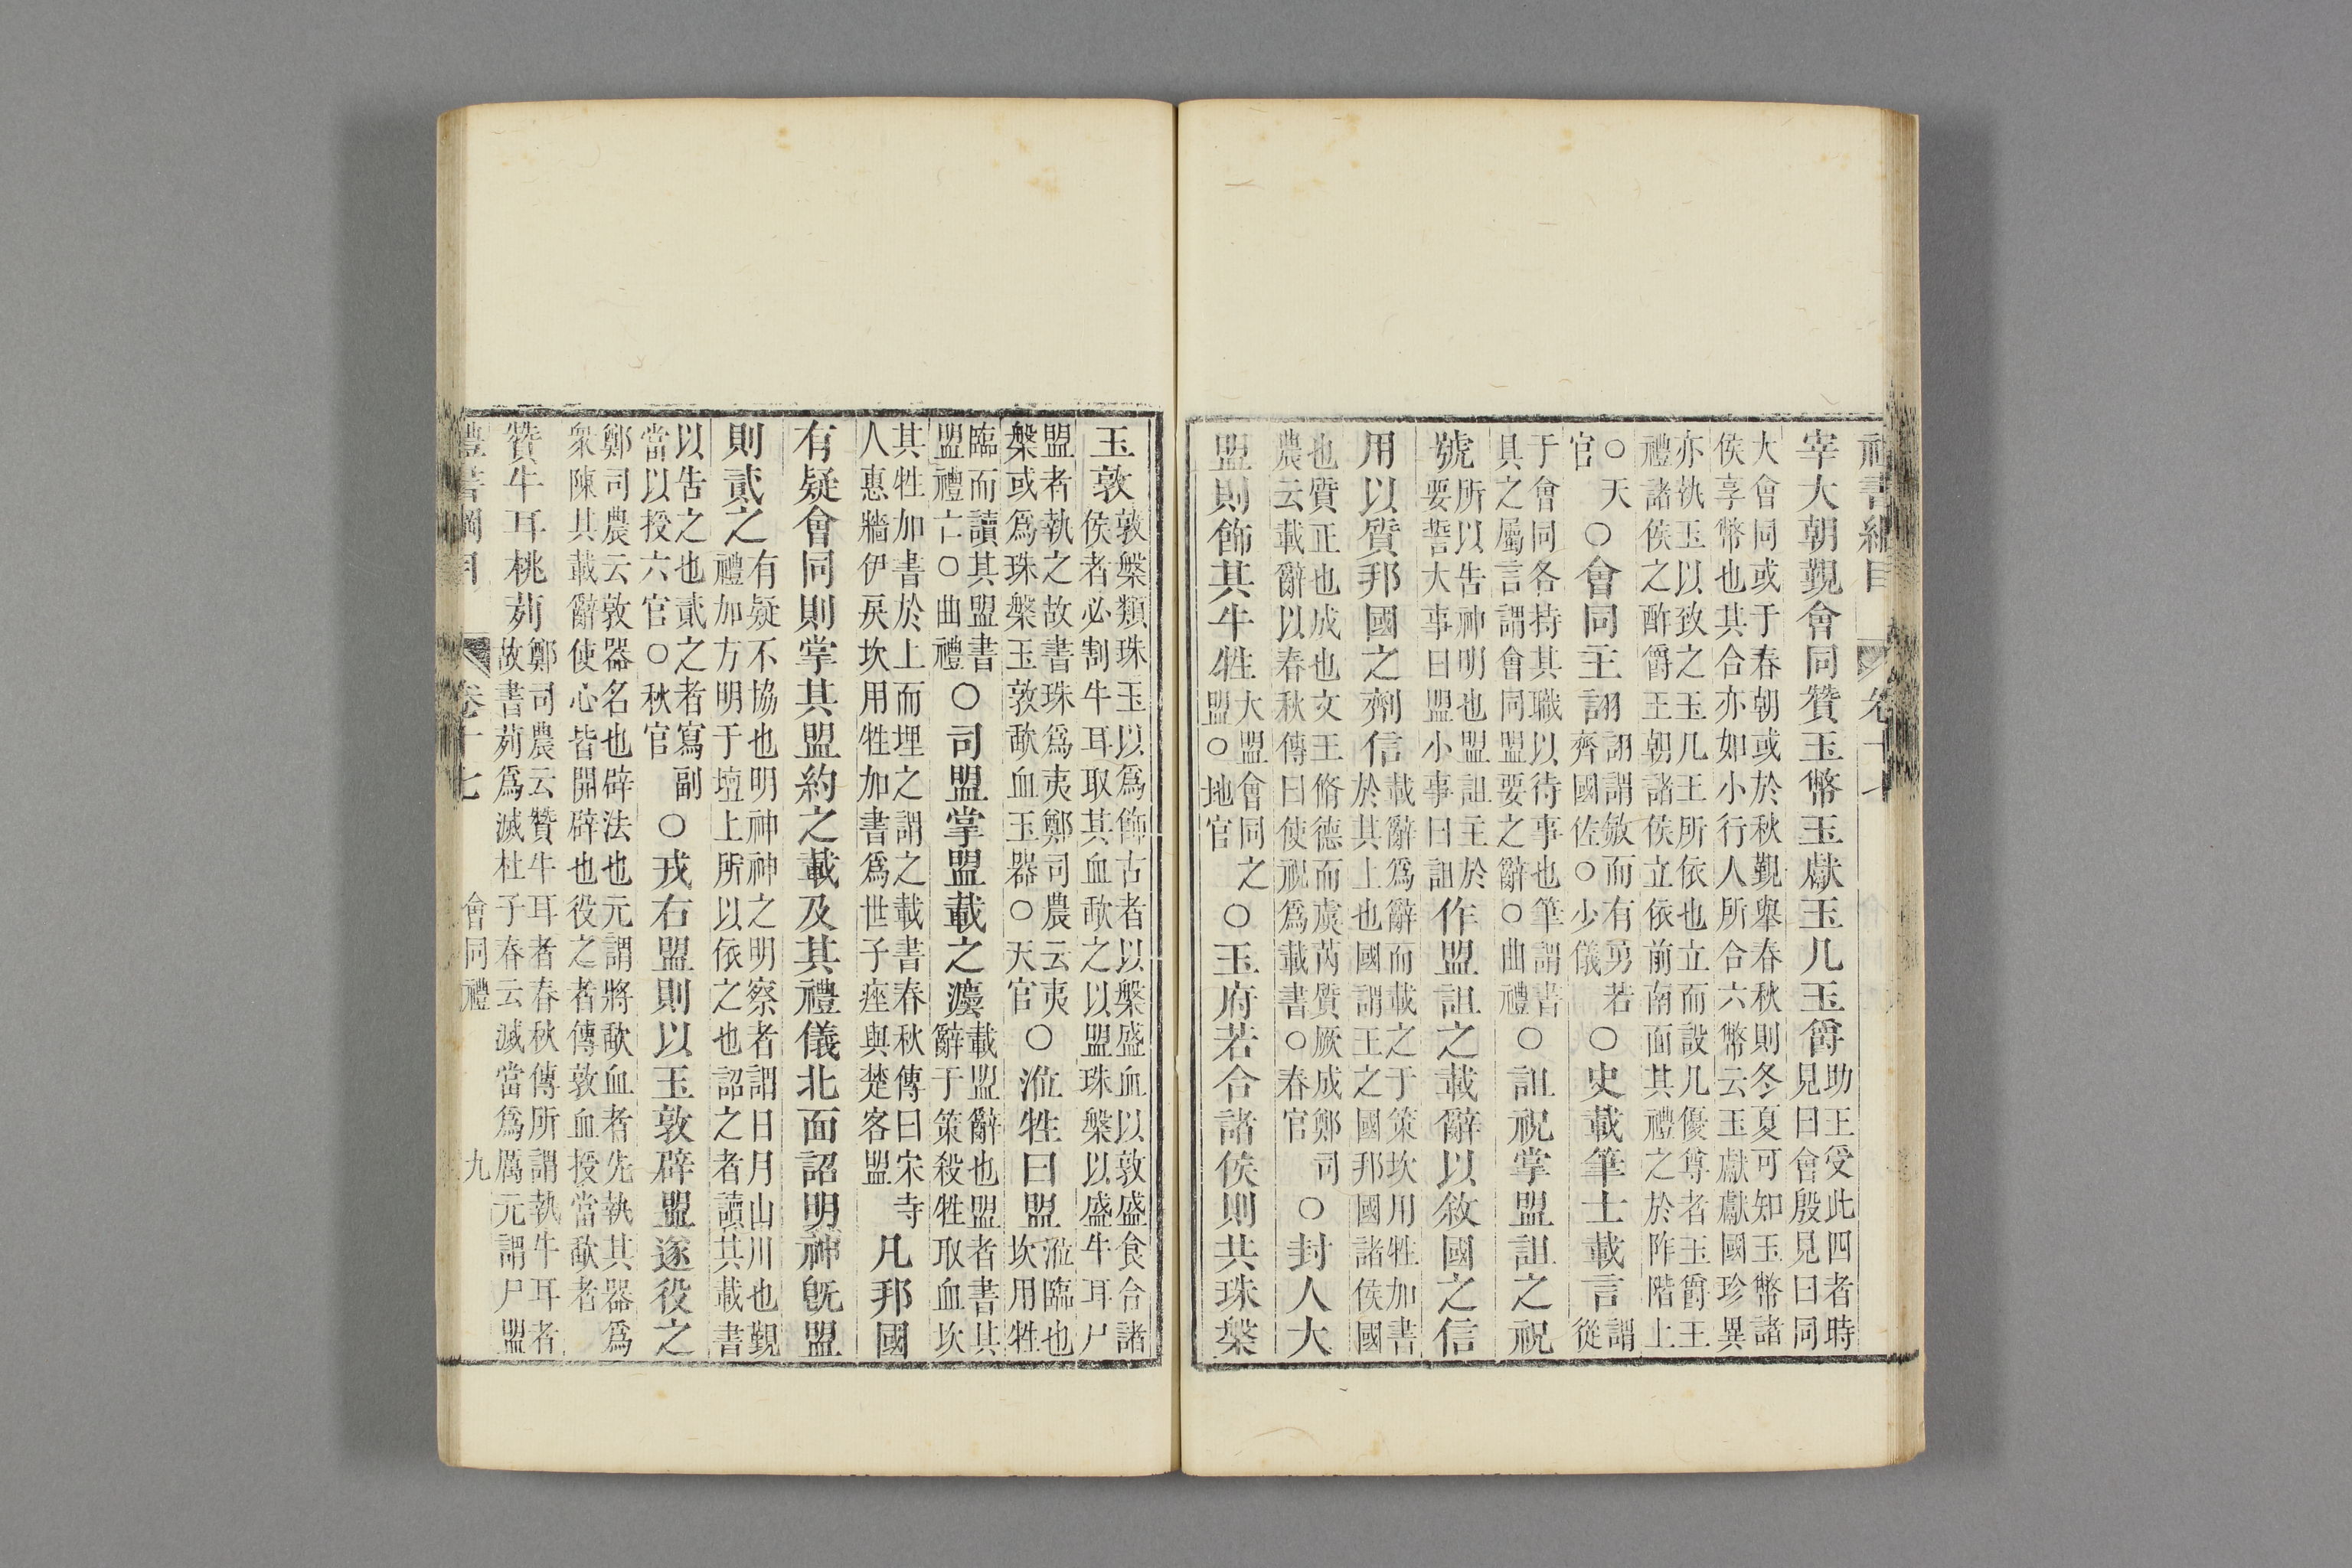 禮書綱目 卷十七
宰大朝覲會同贊玉幣玉獻玉几玉爵助王受此四者時見曰會殷見曰同
大會同或于春朝或於秋覲舉春秋則冬夏可知玉幣諸侯享幣也其合亦如小行人所合六幣云玉獻獻國珍異
亦執玉以致之玉几王所依也立而設几優尊者玉爵王禮諸侯之酢爵王朝諸侯立依前南面其禮之於阼階上
○天官○會同主詡詡謂敏而有勇若齊國佐○少儀○史載筆士載言謂從
于會同各持其職以待事也筆謂書具之屬言謂會同盟要之辭○曲禮○詛祝掌盟詛之祝
號所以告神明也盟詛主於要誓大事曰盟小事曰詛作盟詛之載辭以敘國之信
用以質邦國之劑信載辭爲辭而載之于策坎用牲加書於其上也國謂王之國邦國諸侯國
也質正也成也文王脩德而虞芮質厥成鄭司農云載辭以春秋傳曰使祝爲載書○春官○封人大
盟則飾其牛牲大盟會同之盟○地官○玉府若合諸侯則共珠槃
玉敦敦槃類珠玉以爲飾古者以槃盛血以敦盛食合諸侯者必割牛耳取其血歃之以盟珠槃以盛牛耳尸
盟者執之故書珠爲夷鄭司農云夷槃或爲珠槃玉敦歃血玉器○天官○涖牲曰盟涖臨也坎用牲
臨而讀其盟書盟禮亡○曲禮○司盟掌盟載之灋載盟辭也盟者書其辭于策殺牲取血坎
其牲加書於上而埋之謂之載書春秋傳曰宋寺人惠牆伊戾坎用牲加書爲世子痤與楚客盟凡邦國
有疑會同則掌其盟約之載及其禮儀北面詔明神旣盟
則貳之有疑不協也明神神之明察者謂日月山川也覲禮加方明于壇上所以依之也詔之者讀其載書
以告之也貳之者寫副當以授六官○秋官○戎右盟則以玉敦辟盟遂役之
鄭司農云敦器名也辟法也元謂將歃血者先執其器爲衆陳其載辭使心皆開辟也役之者傳敦血授當歃者
贊牛耳桃茢鄭司農云贊牛耳者春秋傳所謂執牛耳者故書茢爲滅杜子春云滅當爲厲元謂尸盟
禮書綱目 卷十七 會同禮 九